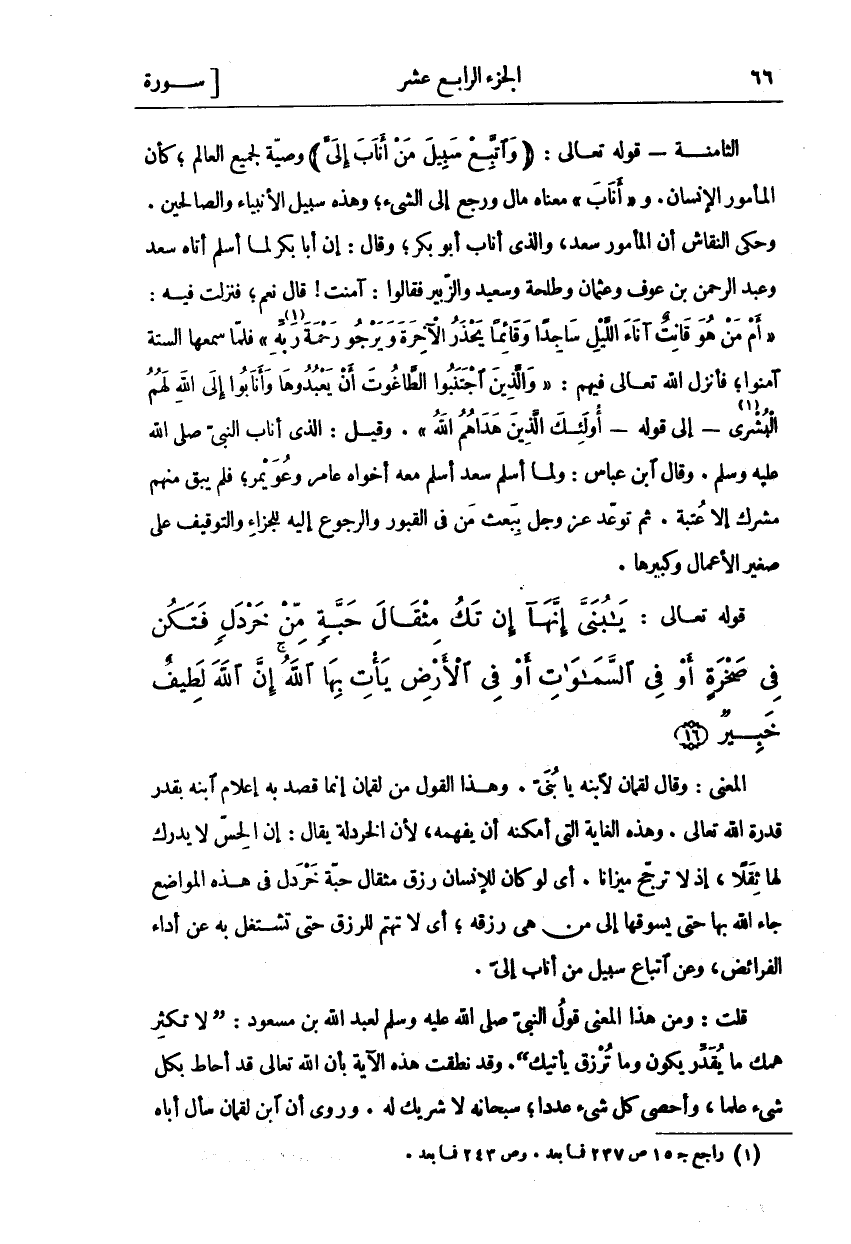 ٦٦ الجزء الرابع عشر [ سورة
الثامنة — قوله تعالى : ﴿ وَٱتَّبِعْ سَبِيلَ مَنْ أَنَابَ إِلَىَّ ﴾ وصيّة لجميع العالم ؛ كأن
المأمور الإنسان. و « أَنَابَ » معناه مال ورجع إلى الشىء؛ وهذه سبيل الأنبياء والصالحين .
وحكى النقاش أن المأمور سعد، والذى أناب أبو بكر؛ وقال : إن أبا بكر لما أسلم أتاه سعد
وعبد الرحمن بن عوف وعثمان وطلحة وسعيد والزّبير فقالوا : آمنت ! قال نعم؛ فنزلت فيه :
« أَمْ مَنْ هُوَ قَانِتٌ آنَاءَ اللَّيْلِ سَاجِدًا وَقَائِمًا يَحْذَرُ الْآخِرَةَ وَيَرْجُو رَحْمَةَ رَبِّهِ(١) » فلمّا سمعها الستة
آمنوا؛ فأنزل الله تعالى فيهم : « وَالَّذِينَ ٱجْتَنَبُوا الطَّاغُوتَ أَنْ يَعْبُدُوهَا وَأَنَابُوا إِلَى اللهِ لَهُمُ
الْبُشْرَى(١) — إلى قوله — أُولَئِكَ الَّذِينَ هَدَاهُمُ اللهُ » . وقيل : الذى أناب النبىّ صلى الله
عليه وسلم . وقال ٱبن عباس : ولما أسلم سعد أسلم معه أخواه عامر وعُوَيْمر؛ فلم يبق منهم
مشرك إلا عُتبة . ثم توعّد عز وجل بِبَعث مَن فى القبور والرجوع إليه للجزاءِ والتوقيف على
صغير الأعمال وكبيرها .
قوله تعالى : يَـٰبُنَىَّ إِنَّهَآ إِن تَكُ مِثْقَالَ حَبَّةٍ مِّنْ خَرْدَلٍ فَتَكُن
فِى صَخْرَةٍ أَوْ فِى ٱلسَّمَـٰوَٰتِ أَوْ فِى ٱلْأَرْضِ يَأْتِ بِهَا ٱللَّهُ ۚ إِنَّ ٱللَّهَ لَطِيفٌ
خَبِيرٌ ⁧(١٦)
المعنى : وقال لقمان لٱبنه يا بُنَىّ . وهذا القول من لقمان إنما قصد به إعلام ٱبنه بقدر
قدرة الله تعالى . وهذه الغاية التى أمكنه أن يفهمه، لأن الخردلة يقال : إن الحسّ لا يدرك
لها ثِقَلًا ، إذ لا ترجّح ميزانا . أى لو كان للإنسان رزق مثقال حبّة خَرْدَل فى هذه المواضع
جاء الله بها حتى يسوقها إلى من هى رزقه ؛ أى لا تهتم للرزق حتى تشتغل به عن أداء
الفرائض، وعن ٱتباع سبيل من أناب إلىّ .
قلت : ومن هذا المعنى قولُ النبىّ صلى الله عليه وسلم لعبد الله بن مسعود : ” لا تكثِر
همك ما يُقدَّر يكون وما تُرْزق يأتيك “. وقد نطقت هذه الآية بأن الله تعالى قد أحاط بكل
شىء علما ، وأحصى كل شىء عددا؛ سبحانه لا شريك له . وروى أن ٱبن لقمان سأل أباه
(١) راجع جـ ١٥ ص ٢٣٧ فما بعد . وص ٢٤٣ فما بعد .